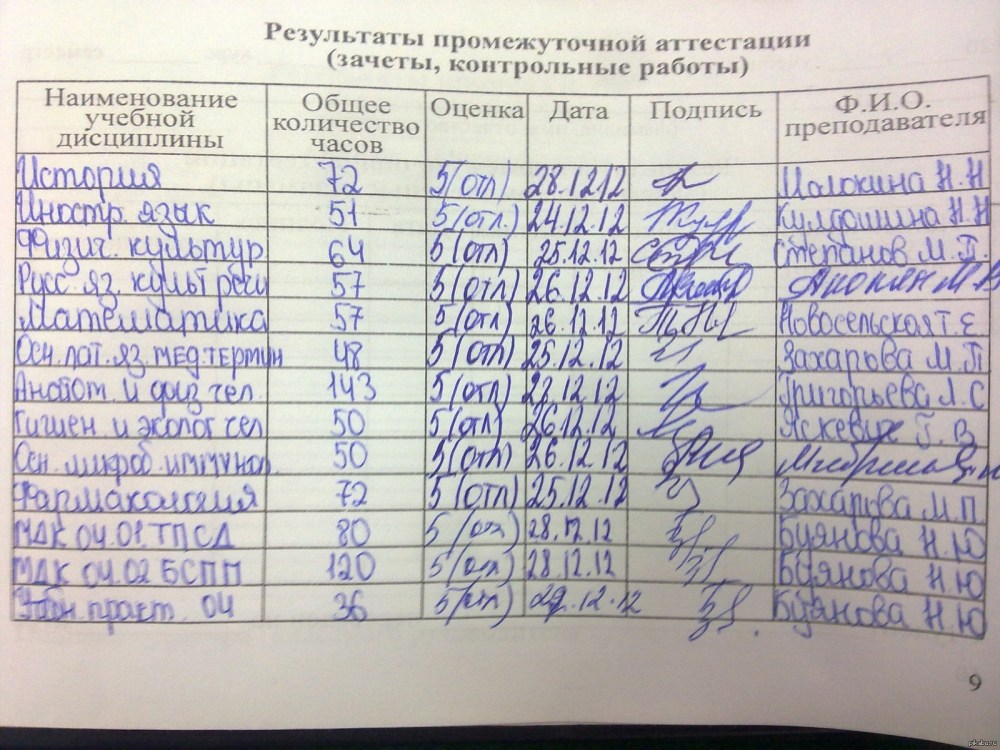 Результаты промежуточной аттестации
(зачеты, контрольные работы)
Наименование учебной дисциплины Общее количество часов Оценка Дата Подпись Ф.И.О. преподавателя
История 72 5(отл) 28.12.12 Н.Н
Иностр. язык 51 5(отл.) 24.12.12 Н.Н
Физич. культур 64 5(отл) 25.12.12 Степанов М.П.
Русс. яз. культ речи 57 5(отл) 26.12.12
Математика 57 5(отл) 26.12.12 Новосельская Т.Е.
Осн. лат. яз. мед. термин 48 5(отл) 25.12.12 Захарова М.П
Анатом. и физ чел. 143 5(отл) 12.12 Григорьева Л.С
Гигиен. и эколог чел 50 5(отл) 26.12.12 Яскевич Г.В
Осн. микроб. иммунол. 50 5(отл) 26.12.12
Фармакология 72 5(отл) 25.12.12 Захарова М.П.
МДК 04.01. ТПСД 80 5(отл) 28.12.12 Буянова Н.Ю
МДК 04.02 БСПП 120 5(отл) 28.12.12 Буянова Н.Ю
практ. 04 36 5(отл) 12.12 Буянова Н.Ю
9